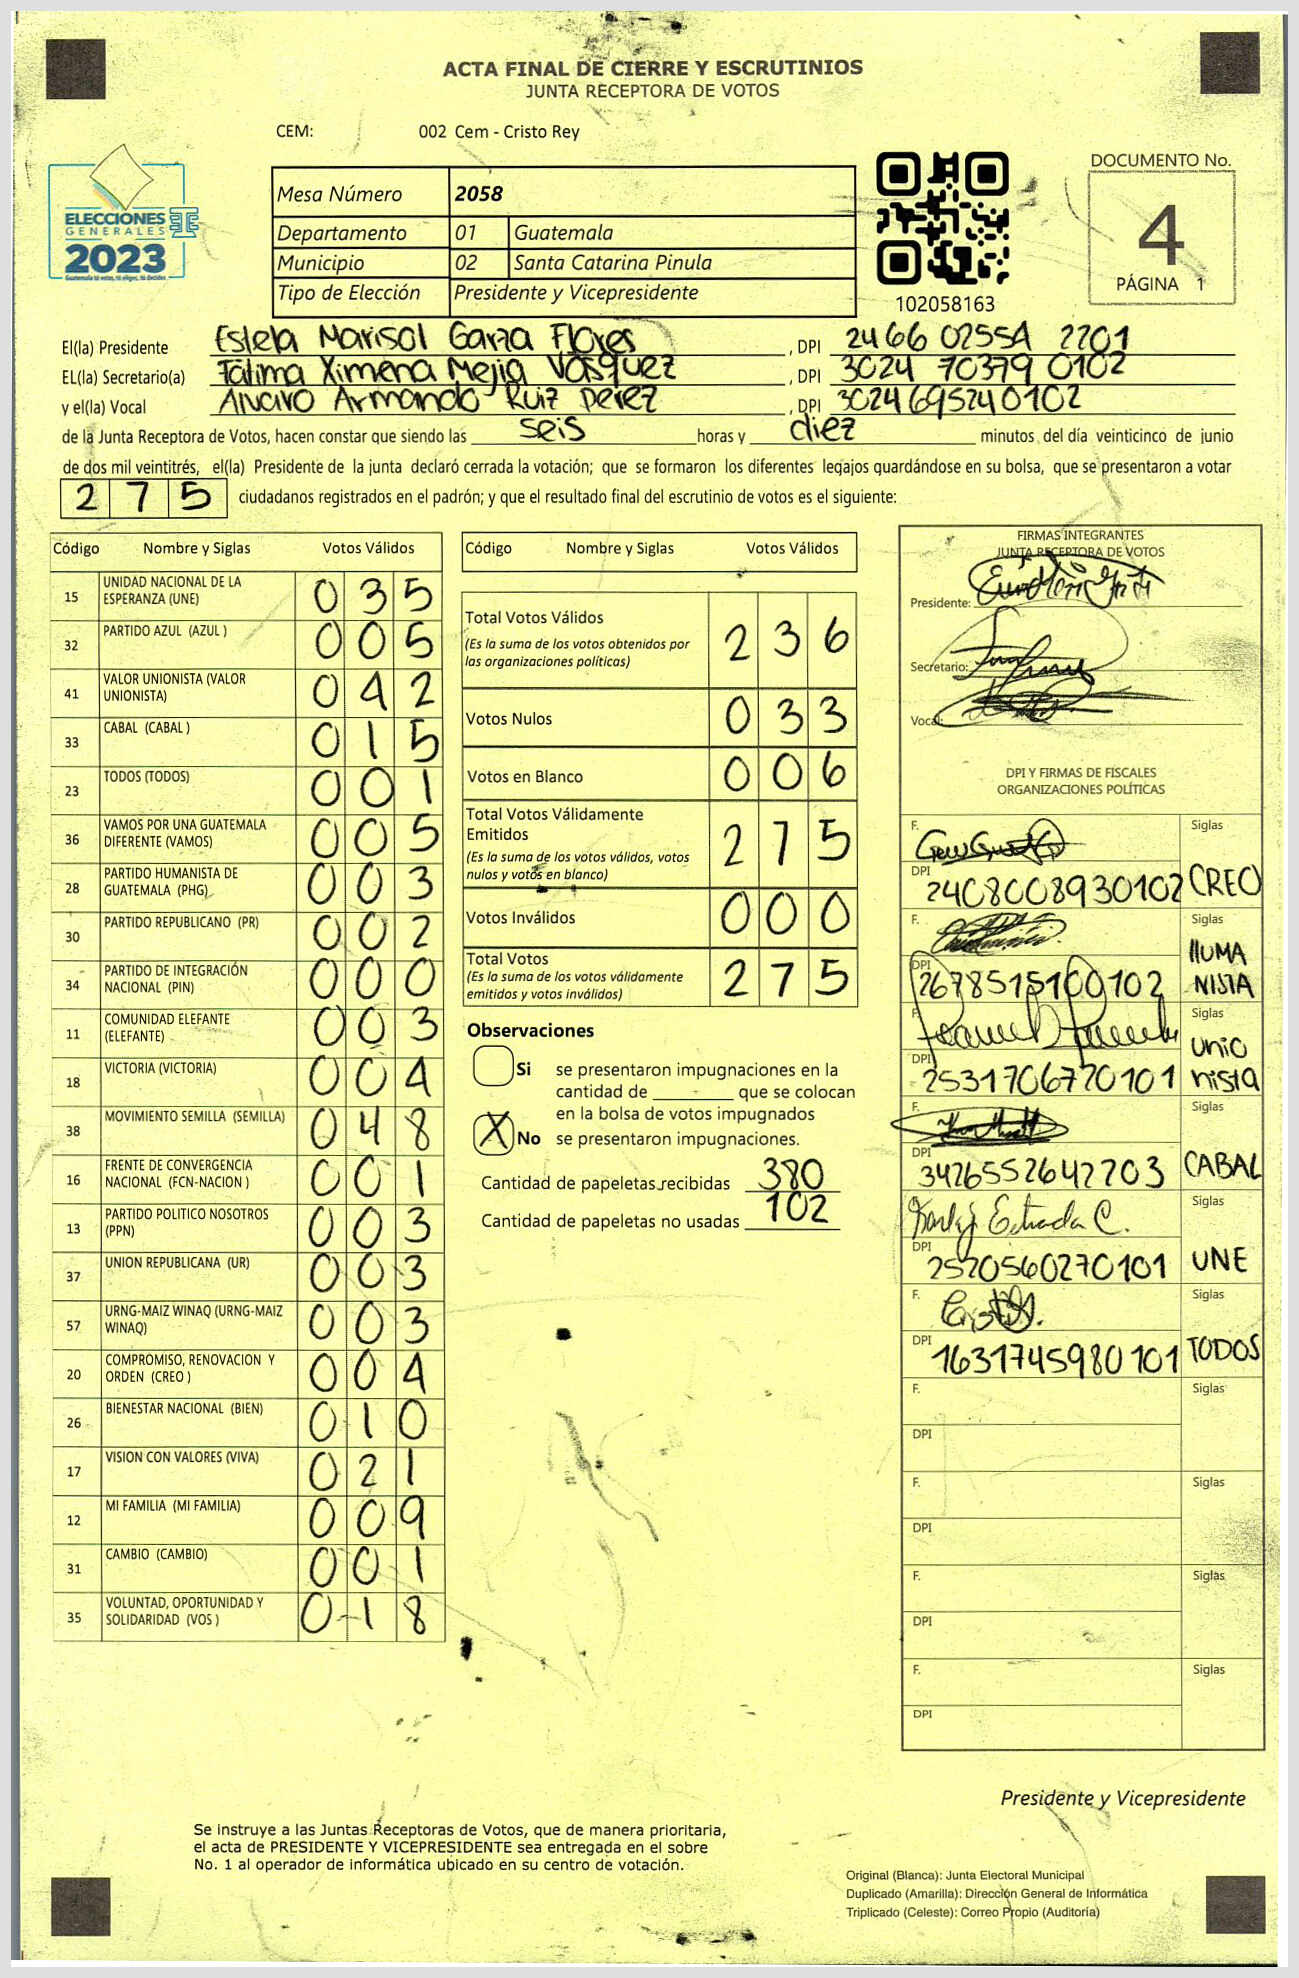 ACTA FINAL DE CIERRE Y ESCRUTINIOS
JUNTA RECEPTORA DE VOTOS
CEM: 002 Cem - Cristo Rey
ELECCIONES
GENERALES
2023
Guatemala tú votas, tú eliges, tú decides
Mesa Número 2058
Departamento 01 Guatemala
Municipio 02 Santa Catarina Pinula
Tipo de Elección Presidente y Vicepresidente
102058163
DOCUMENTO No.
4
PÁGINA 1
El(la) Presidente Estela Marisol Garza Flores, DPI 2466 02554 2201
EL(la) Secretario(a) Fátima Ximena Mejia Vásquez, DPI 3024 70379 0102
y el(la) Vocal Alvaro Armando Ruiz Perez, DPI 3024695240102
de la Junta Receptora de Votos, hacen constar que siendo las seis horas y diez minutos del día veinticinco de junio
de dos mil veintitrés, el(la) Presidente de la junta declaró cerrada la votación; que se formaron los diferentes legajos guardándose en su bolsa, que se presentaron a votar
275 ciudadanos registrados en el padrón; y que el resultado final del escrutinio de votos es el siguiente:
Código Nombre y Siglas Votos Válidos
15 UNIDAD NACIONAL DE LA ESPERANZA (UNE) 035
32 PARTIDO AZUL (AZUL ) 005
41 VALOR UNIONISTA (VALOR UNIONISTA) 042
33 CABAL (CABAL ) 015
23 TODOS (TODOS) 001
36 VAMOS POR UNA GUATEMALA DIFERENTE (VAMOS) 005
28 PARTIDO HUMANISTA DE GUATEMALA (PHG) 003
30 PARTIDO REPUBLICANO (PR) 002
34 PARTIDO DE INTEGRACIÓN NACIONAL (PIN) 000
11 COMUNIDAD ELEFANTE (ELEFANTE) 003
18 VICTORIA (VICTORIA) 004
38 MOVIMIENTO SEMILLA (SEMILLA) 048
16 FRENTE DE CONVERGENCIA NACIONAL (FCN-NACION ) 001
13 PARTIDO POLITICO NOSOTROS (PPN) 003
37 UNION REPUBLICANA (UR) 003
57 URNG-MAIZ WINAQ (URNG-MAIZ WINAQ) 003
20 COMPROMISO, RENOVACION Y ORDEN (CREO ) 004
26 BIENESTAR NACIONAL (BIEN) 010
17 VISION CON VALORES (VIVA) 021
12 MI FAMILIA (MI FAMILIA) 009
31 CAMBIO (CAMBIO) 001
35 VOLUNTAD, OPORTUNIDAD Y SOLIDARIDAD (VOS ) 018
Código Nombre y Siglas Votos Válidos
Total Votos Válidos 236
(Es la suma de los votos obtenidos por
las organizaciones políticas)
Votos Nulos 033
Votos en Blanco 006
Total Votos Válidamente
Emitidos 275
(Es la suma de los votos válidos, votos
nulos y votos en blanco)
Votos Inválidos 000
Total Votos 275
(Es la suma de los votos válidamente
emitidos y votos inválidos)
Observaciones
Si se presentaron impugnaciones en la
cantidad de ________ que se colocan
en la bolsa de votos impugnados
X No se presentaron impugnaciones.
Cantidad de papeletas recibidas 380
Cantidad de papeletas no usadas 102
FIRMAS INTEGRANTES
JUNTA RECEPTORA DE VOTOS
Presidente:
Secretario:
Vocal:
DPI Y FIRMAS DE FISCALES
ORGANIZACIONES POLÍTICAS
F. Siglas
DPI 2408008930102 CREO
F. Siglas
DPI 2678515100102 HUMA
NISTA
F. Siglas
DPI 2531706770101 Unio
nista
F. Siglas
DPI 3426552642203 CABAL
F. Karla Estrada C. Siglas
DPI 2520560270101 UNE
F. Siglas
DPI 1631745980101 TODOS
F. Siglas
DPI
F. Siglas
DPI
F. Siglas
DPI
F. Siglas
DPI
Presidente y Vicepresidente
Se instruye a las Juntas Receptoras de Votos, que de manera prioritaria,
el acta de PRESIDENTE Y VICEPRESIDENTE sea entregada en el sobre
No. 1 al operador de informática ubicado en su centro de votación.
Original (Blanca): Junta Electoral Municipal
Duplicado (Amarilla): Dirección General de Informática
Triplicado (Celeste): Correo Propio (Auditoría)